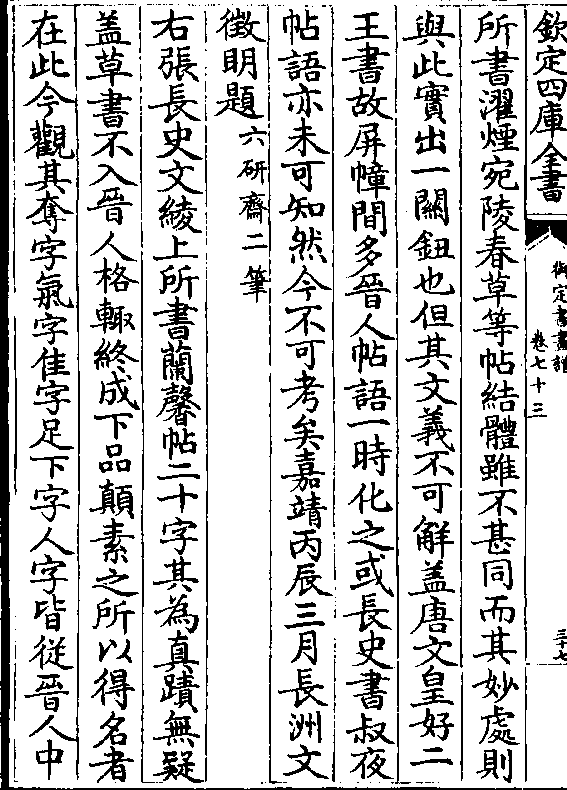 欽定四庫全書
御定書畫譜
卷七十三
三十七
所書濯煙宛陵春草等帖結體雖不甚同而其妙處則
與此實出一關鈕也但其文義不可解盖唐文皇好二
王書故屏幛間多晉人帖語一時化之或長史書叔夜
帖語亦未可知然今不可考矣嘉靖丙辰三月長洲文
徵明題六研齋二筆
右張長史文綾上所書蘭馨帖二十字其為真蹟無疑
盖草書不入晉人格輙終成下品顛素之所以得名者
在此今觀其奪字氣字佳字足下字人字皆從晉人中